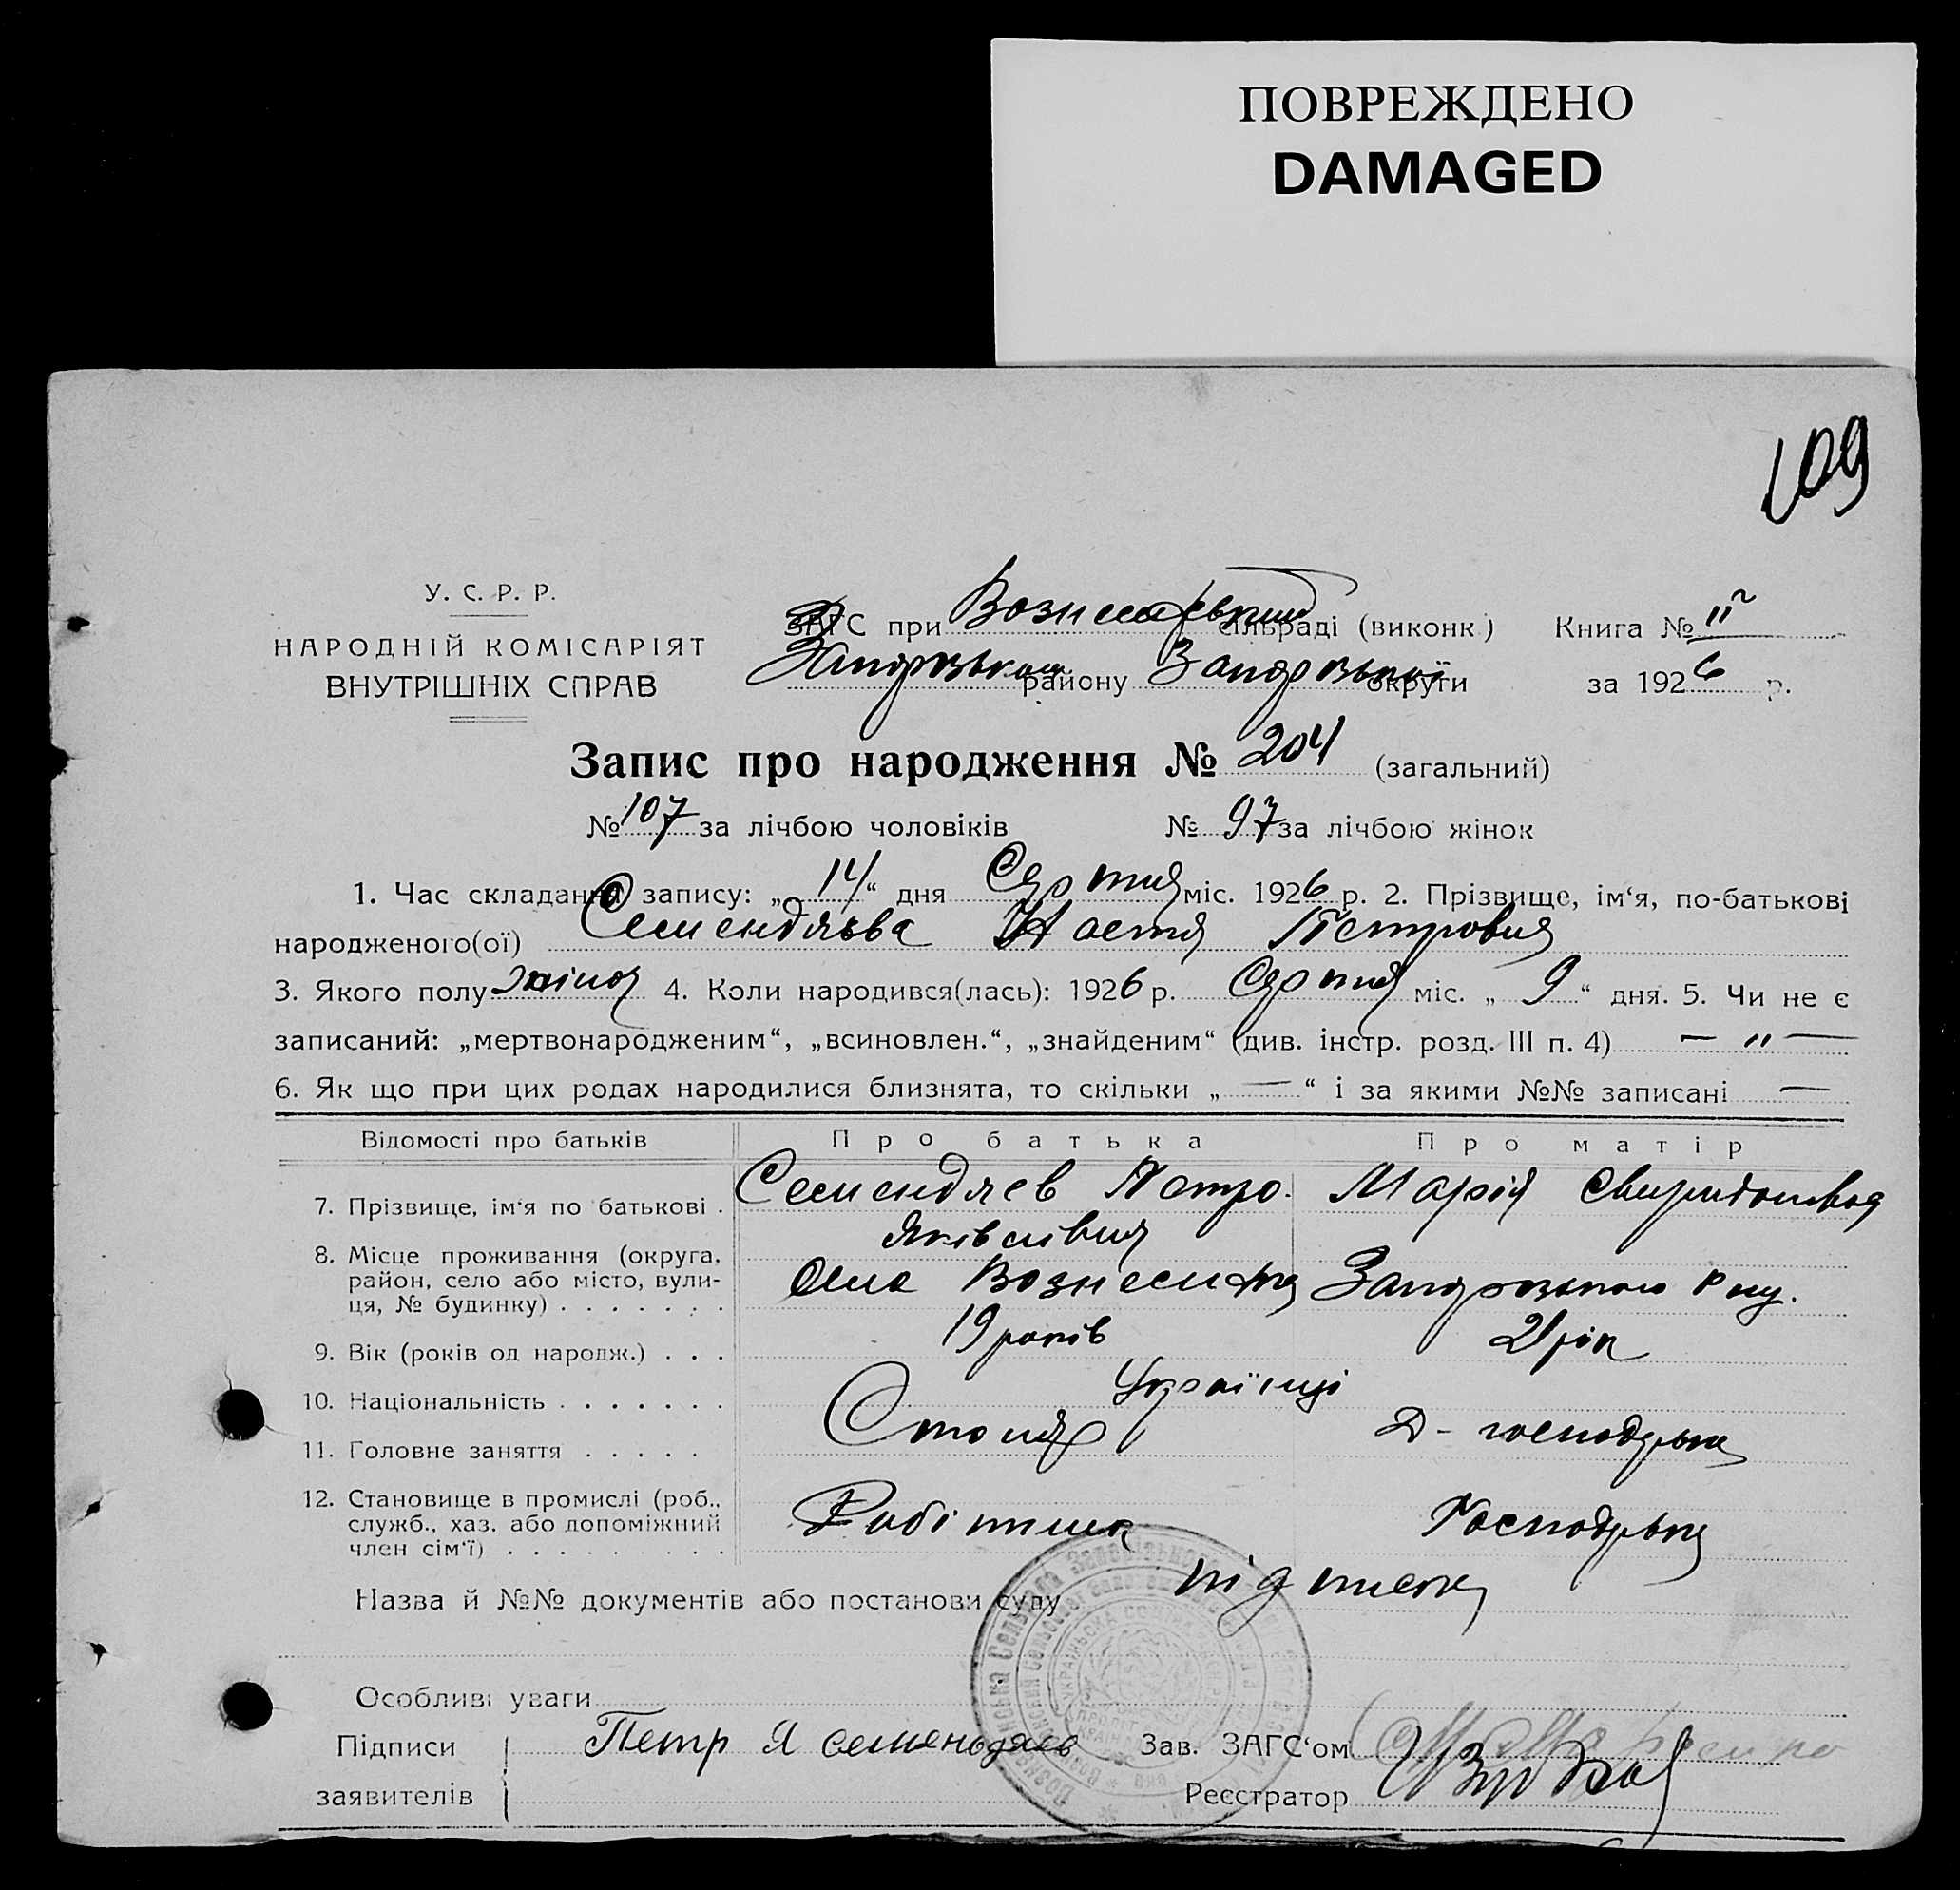 ПОВРЕЖДЕНО
DAMAGED
109
У. С. Р. Р.
НАРОДНІЙ КОМІСАРІЯТ
ВНУТРІШНІХ СПРАВ
ЗАГС при сільраді (виконк.) Книга № II
району округи за 1926 р.
Запис про народження № 204 (загальний)
№ 107 за лічбою чоловіків № 97 за лічбою жінок
1. Час складання запису: „14“ дня Серпня міс. 1926 р. 2. Прізвище, ім‘я, по-батькові
народженого(ої) Семендяєва Настя Петровна
3. Якого полу жіноч 4. Коли народився(лась): 1926 р. Серпня міс. „9“ дня. 5. Чи не є
записаний: „мертвонародженим“, „всиновлен.“, „знайденим“ (див. інстр. розд. III п. 4) — „ —
6. Як що при цих родах народилися близнята, то скільки „—“ і за якими №№ записані —
Відомості про батьків Про батька Про матір
7. Прізвище, ім‘я по батькові . Семендяєв Петро Марія
Яківлівич
8. Місце проживання (округа, район, село або місто, вулиця, № будинку) . . . . . . . Села Вознесенка Запорозького р-ну.
9. Вік (років од народж.) . . . 19 років 21 рік
10. Національність . . . . . . . Українці
11. Головне заняття . . . . . Столяр Д-господарка
12. Становище в промислі (роб., служб., хаз. або допоміжний член сім‘ї) . . . . . . . . . Робітник Господарка
Назва й №№ документів або постанови суду підписка
Особливі уваги
Підписи заявителів Петр Я семеньдяев
Зав. ЗАГС‘ом
Реєстратор